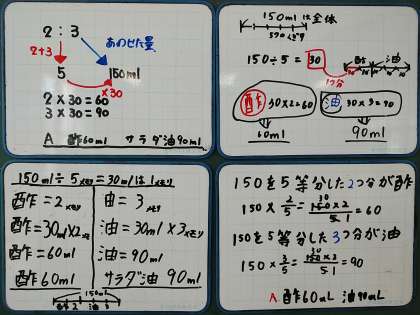 2 : 3
あわせた量
2+3
5
150ml
×30
2×30=60
3×30=90
A 酢60ml サラダ油90ml
150mlは全体
150÷5=30
酢 油
1つ分
酢 30×2=60
油 30×3=90
60ml
90ml
150ml÷5メモリ=30mlは1メモリ
酢=2メモリ
油=3メモリ
酢=30ml×2メモリ
油=30ml×3メモリ
酢=60ml
油=90ml
酢60ml
サラダ油 90ml
150ml
酢2 油3
150を5等分した2つ分が酢
150×2/5=150×2/5=60
30
1
150を5等分した3つ分が油
150×3/5=150×3/5=90
30
1
A 酢60mL 油90mL